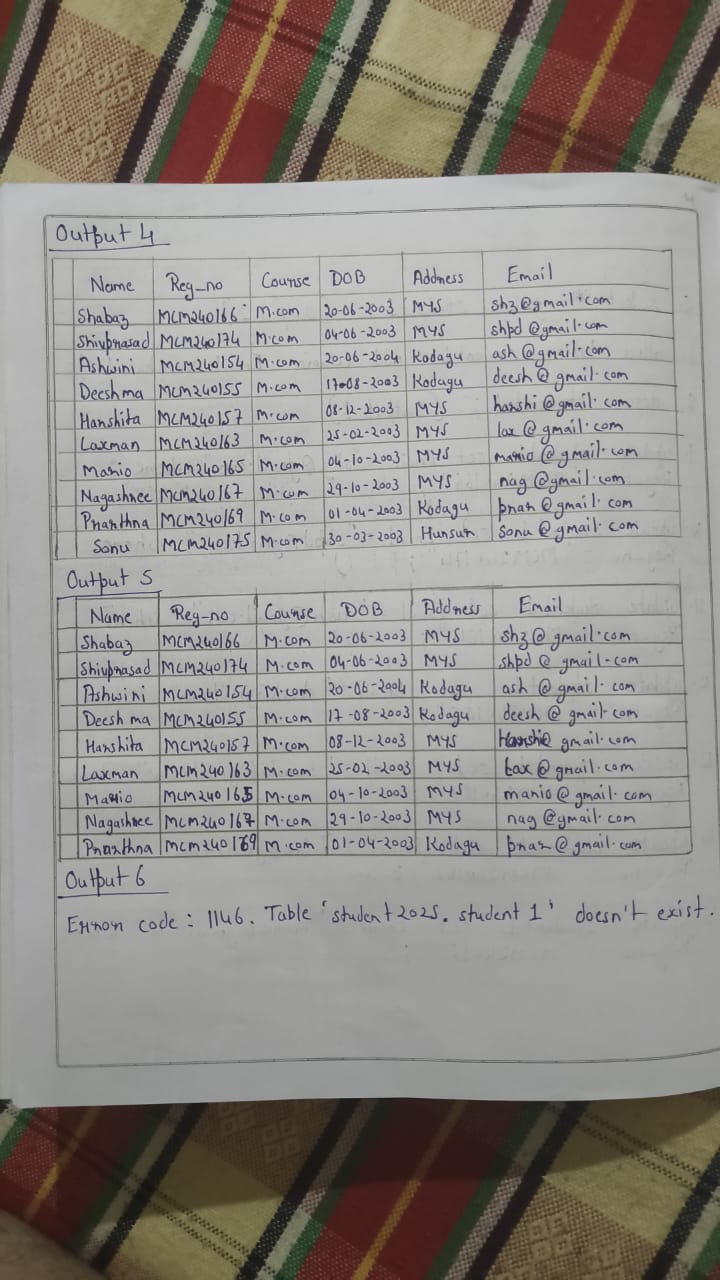 Output 4
Name Reg-no Course DOB Address Email
Shabaz MCM240166 M.com 20-06-2003 MYS shz@gmail.com
Shivprasad MCM240174 M.com 04-06-2003 MYS shpd@gmail.com
Ashwini MCM240154 M.com 20-06-2004 Kodagu ash@gmail.com
Deeshma MCM240155 M.com 17-08-2003 Kodagu deesh@gmail.com
Harshita MCM240157 M.com 08-12-2003 MYS harshi@gmail.com
Laxman MCM240163 M.com 25-02-2003 MYS lax@gmail.com
Mario MCM240165 M.com 04-10-2003 MYS mario@gmail.com
Nagashree MCM240167 M.com 29-10-2003 MYS nag@gmail.com
Prarthna MCM240169 M.com 01-04-2003 Kodagu prar@gmail.com
Sonu MCM240175 M.com 30-03-2003 Hunsur sonu@gmail.com
Output 5
Name Reg-no Course DOB Address Email
Shabaz MCM240166 M.com 20-06-2003 MYS shz@gmail.com
Shivprasad MCM240174 M.com 04-06-2003 MYS shpd@gmail.com
Ashwini MCM240154 M.com 20-06-2004 Kodagu ash@gmail.com
Deeshma MCM240155 M.com 17-08-2003 Kodagu deesh@gmail.com
Harshita MCM240157 M.com 08-12-2003 MYS gmail.com
Laxman MCM240163 M.com 25-02-2003 MYS lax@gmail.com
Mario MCM240165 M.com 04-10-2003 MYS mario@gmail.com
Nagashree MCM240167 M.com 29-10-2003 MYS nag@gmail.com
Prarthna MCM240169 M.com 01-04-2003 Kodagu prar@gmail.com
Output 6
Error code : 1146. Table 'student2025.student1' doesn't exist.